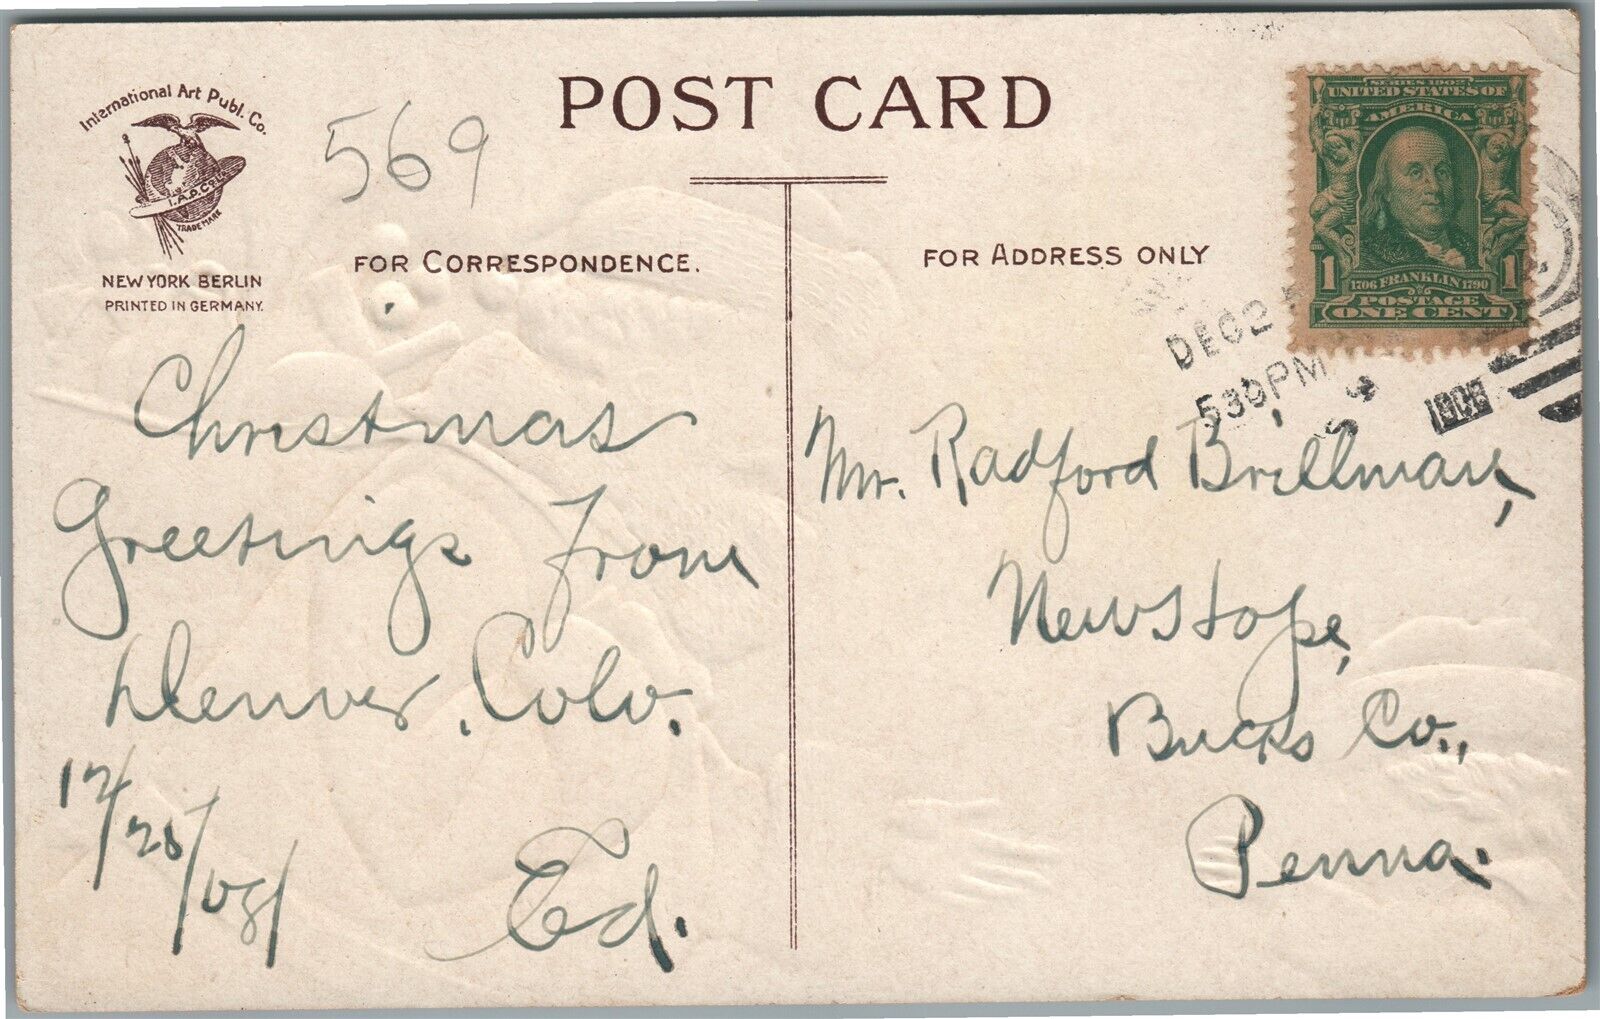 International Art Publ. Co.
I.A.P.CO.
TRADE MARK
NEW YORK BERLIN
PRINTED IN GERMANY.
569
POST CARD
FOR CORRESPONDENCE.
FOR ADDRESS ONLY
SERIES 1902
UNITED STATES OF
AMERICA
1
1706 FRANKLIN 1790
1
POSTAGE
ONE CENT
DEC 2
530PM
Christmas
Greetings from
Denver, Colo.
Ed.
Mr. Radford Brillman,
New Hope,
Bucks Co.,
Penna.